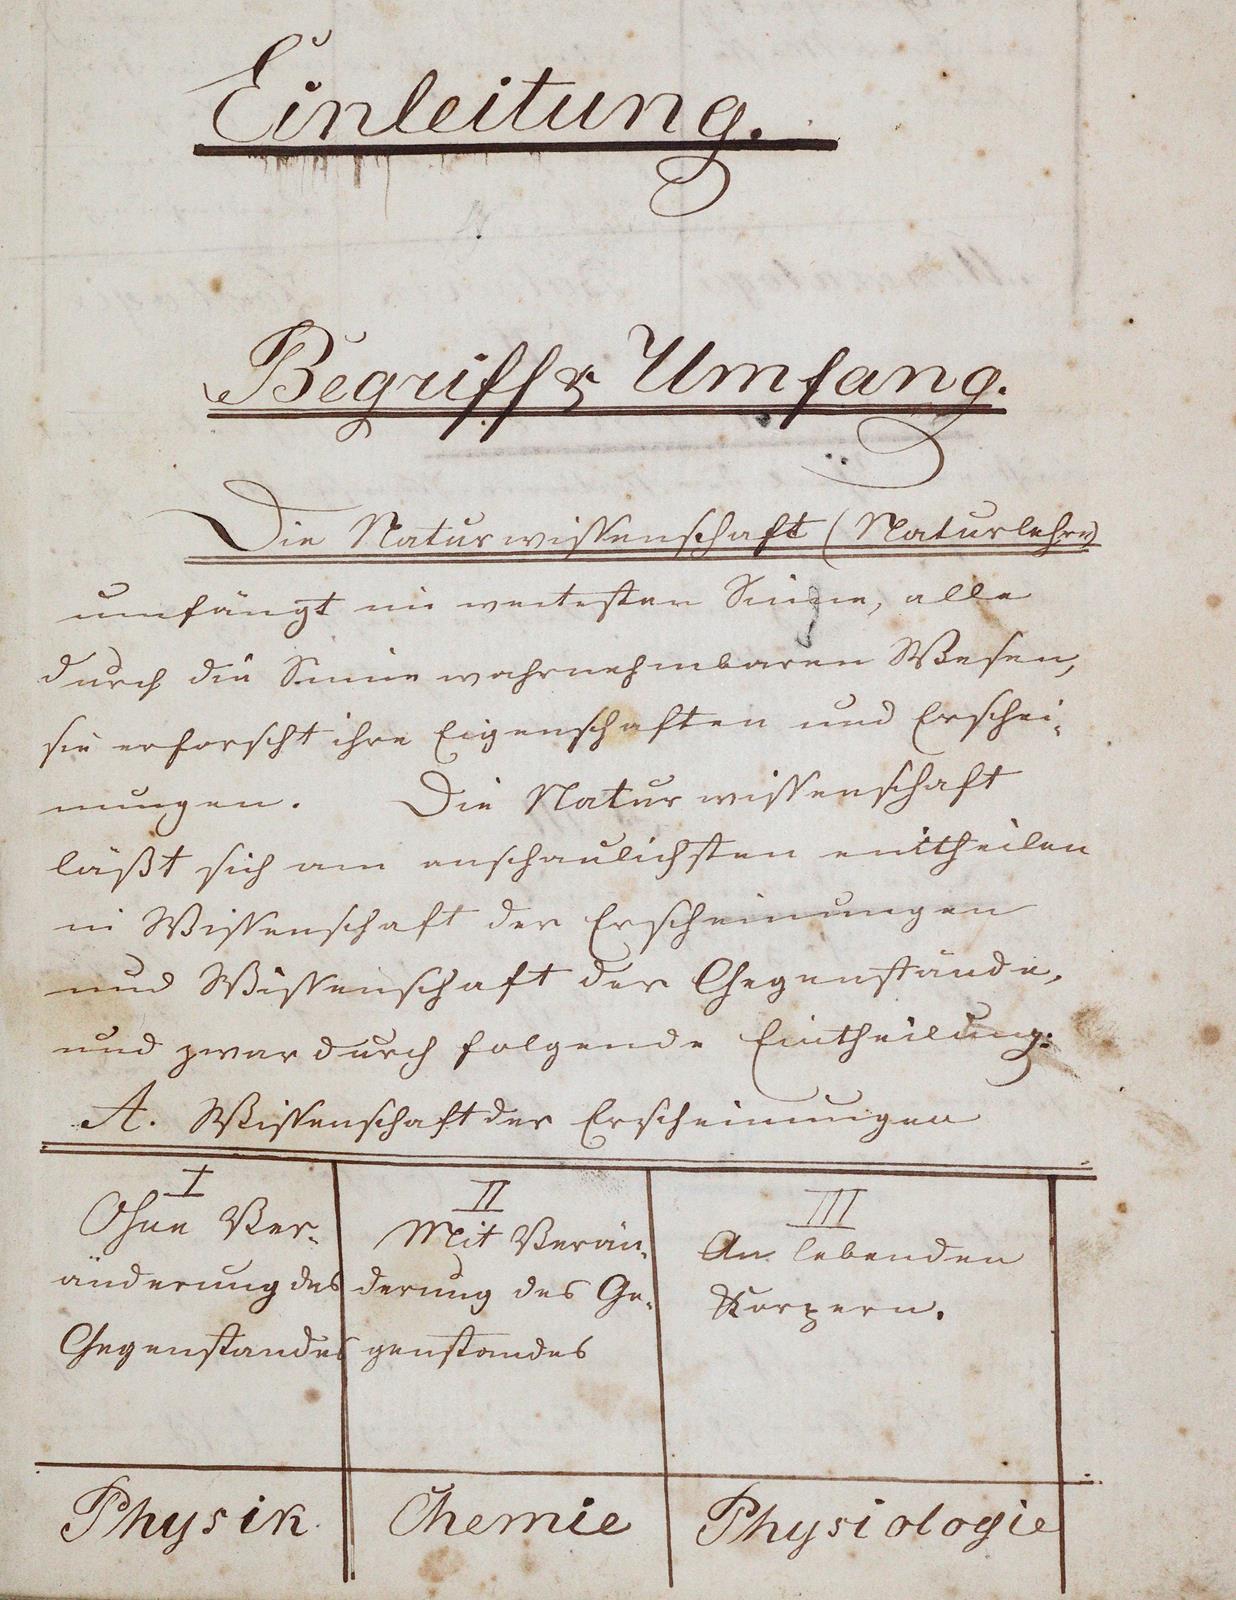 Einleitung.
Begriff & Umfang.
Die Naturwissenschaft (Naturlehre)
umfängt im weitesten Sinne, alle
durch die Sinne wahrnehmbaren Wesen,
sie erforscht ihre Eigenschaften und Erschei-
nungen. Die Naturwissenschaft
läßt sich am anschaulichsten eintheilen
in Wissenschaft der Erscheinungen
und Wissenschaft der Gegenstände,
und zwar durch folgende Eintheilung:
A. Wissenschaft der Erscheinungen
I
Ohne Ver-
änderung des
Gegenstandes
II
Mit Verän-
derung des Ge-
genstandes
III
An lebenden
Körpern.
Physik
Chemie
Physiologie